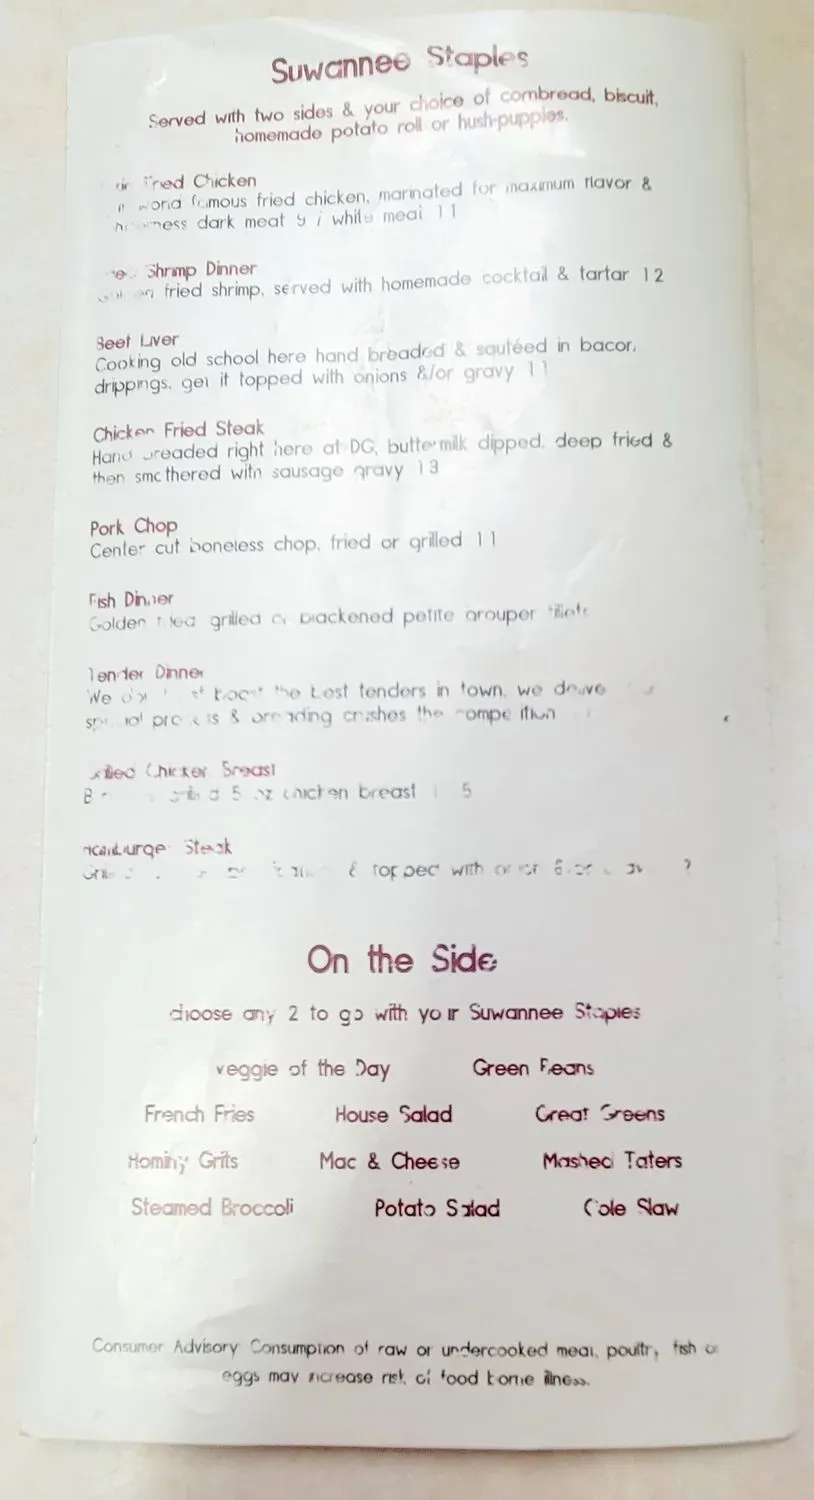 Suwannee Staples
Served with two sides & your choice of cornbread, biscuit,
homemade potato roll or hush-puppies.
Fried Chicken
world famous fried chicken, marinated for maximum flavor &
dark meat 9 / white meat 11
Shrimp Dinner
fried shrimp, served with homemade cocktail & tartar 12
Beef Liver
Cooking old school here hand breaded & sautéed in bacon
drippings, get it topped with onions &/or gravy 11
Chicken Fried Steak
Hand breaded right here at DG, buttermilk dipped, deep fried &
then smothered with sausage gravy 13
Pork Chop
Center cut boneless chop, fried or grilled 11
Fish Dinner
Golden fried grilled or blackened petite grouper fillets
Tender Dinner
We boast the best tenders in town, we
process & breading crushes the competition
Grilled Chicken Breast
5 oz chicken breast
Hamburger Steak
& topped with
On the Side
choose any 2 to go with your Suwannee Staples
Veggie of the Day Green Beans
French Fries House Salad Great Greens
Hominy Grits Mac & Cheese Mashed Taters
Steamed Broccoli Potato Salad Cole Slaw
Consumer Advisory Consumption of raw or undercooked meat, poultry, fish or
eggs may increase risk of food borne illness.